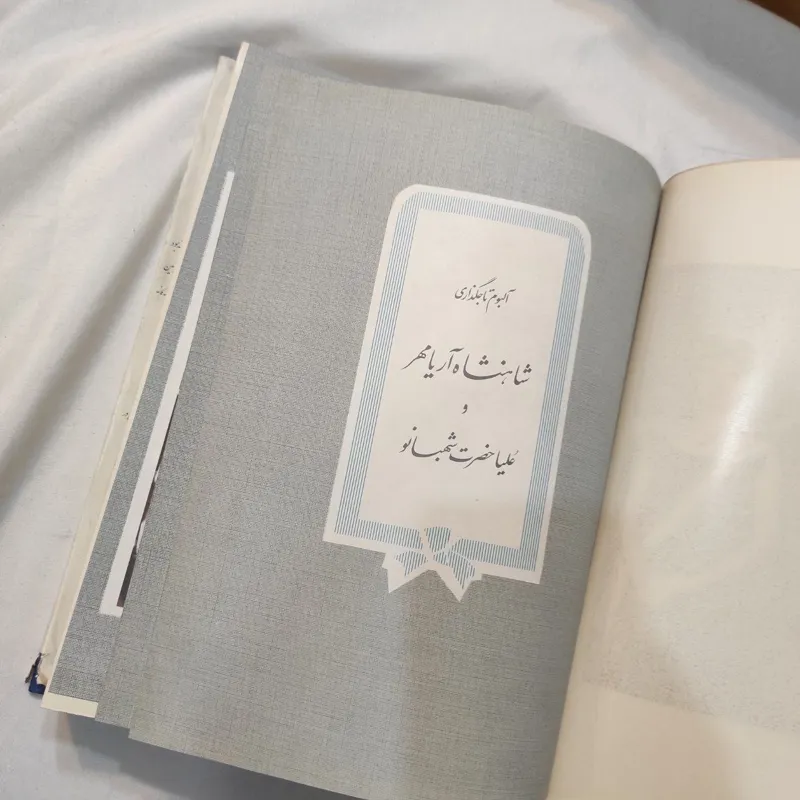 آلبوم تاجگذاری
شاهنشاه آریامهر
و
عُلیاحضرت شهبانو